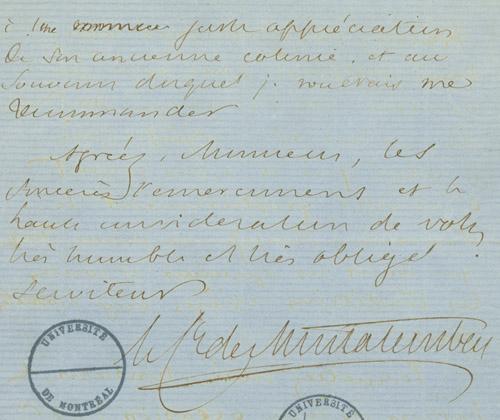 à une juste appréciation
de son ancienne colonie, et au
souvenir duquel je voudrais me
recommander
Agréez, Monsieur, les
sincères remerciemens et la
haute considération de votre
très humble et très obligé
serviteur
le Cte de Montalembert
UNIVERSITÉ DE MONTRÉAL
UNIVERSITÉ